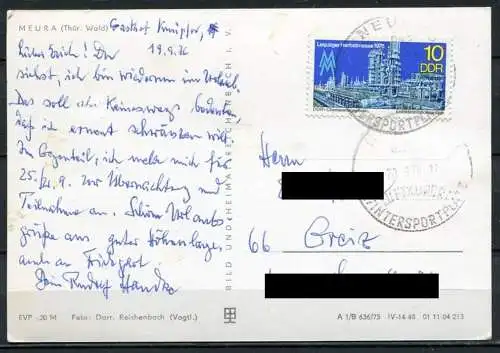 MEURA (Thür. Wald) Gasthof Knüpfer,
19.9.76
Lieber Erich! Du
siehst, ich bin wiederum im Urlaub.
Das soll aber keineswegs bedeuten,
daß ich erneut schwänzen will.
Im Gegenteil, ich melde mich für
25./26.9. zur Übernachtung und
Teilnahme an. Schöne Urlaubs-
grüße aus guter Höhenlage,
auch an Friedgart.
Dein Rudolf Handke
EVP -,20 M Foto: Darr, Reichenbach (Vogtl.)
BILD UND HEIMAT REICHENBACH I. V.
Leipziger Herbstmesse 1976
MM
10
DDR
WINTERSPORTPLATZ
LUFTKURORT
WINTERSPORTPLATZ
Herrn
66 Greiz
A 1/B 636/75 IV-14-48 01 11 04 213